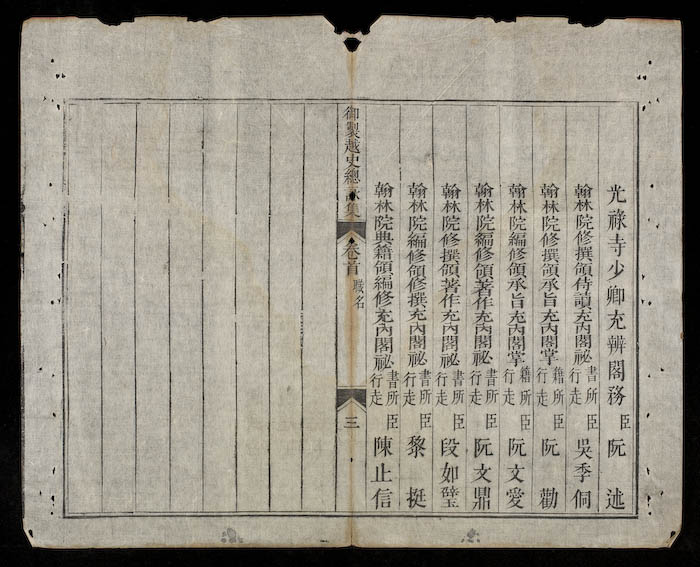 光祿寺少卿充辨閣務臣阮述
翰林院修撰領侍讀充內閣祕書所行走臣吳季侗
翰林院修撰領承旨充內閣掌籍所行走臣阮勸
翰林院編修領承旨充內閣掌籍所行走臣阮文愛
翰林院編修領著作充內閣祕書所行走臣阮文鼎
翰林院修撰領著作充內閣祕書所行走臣段如璧
翰林院編修領修撰充內閣祕書所行走臣黎挺
翰林院典籍領編修充內閣祕書所行走臣陳止信
御製越史總詠集 卷首 職名 三